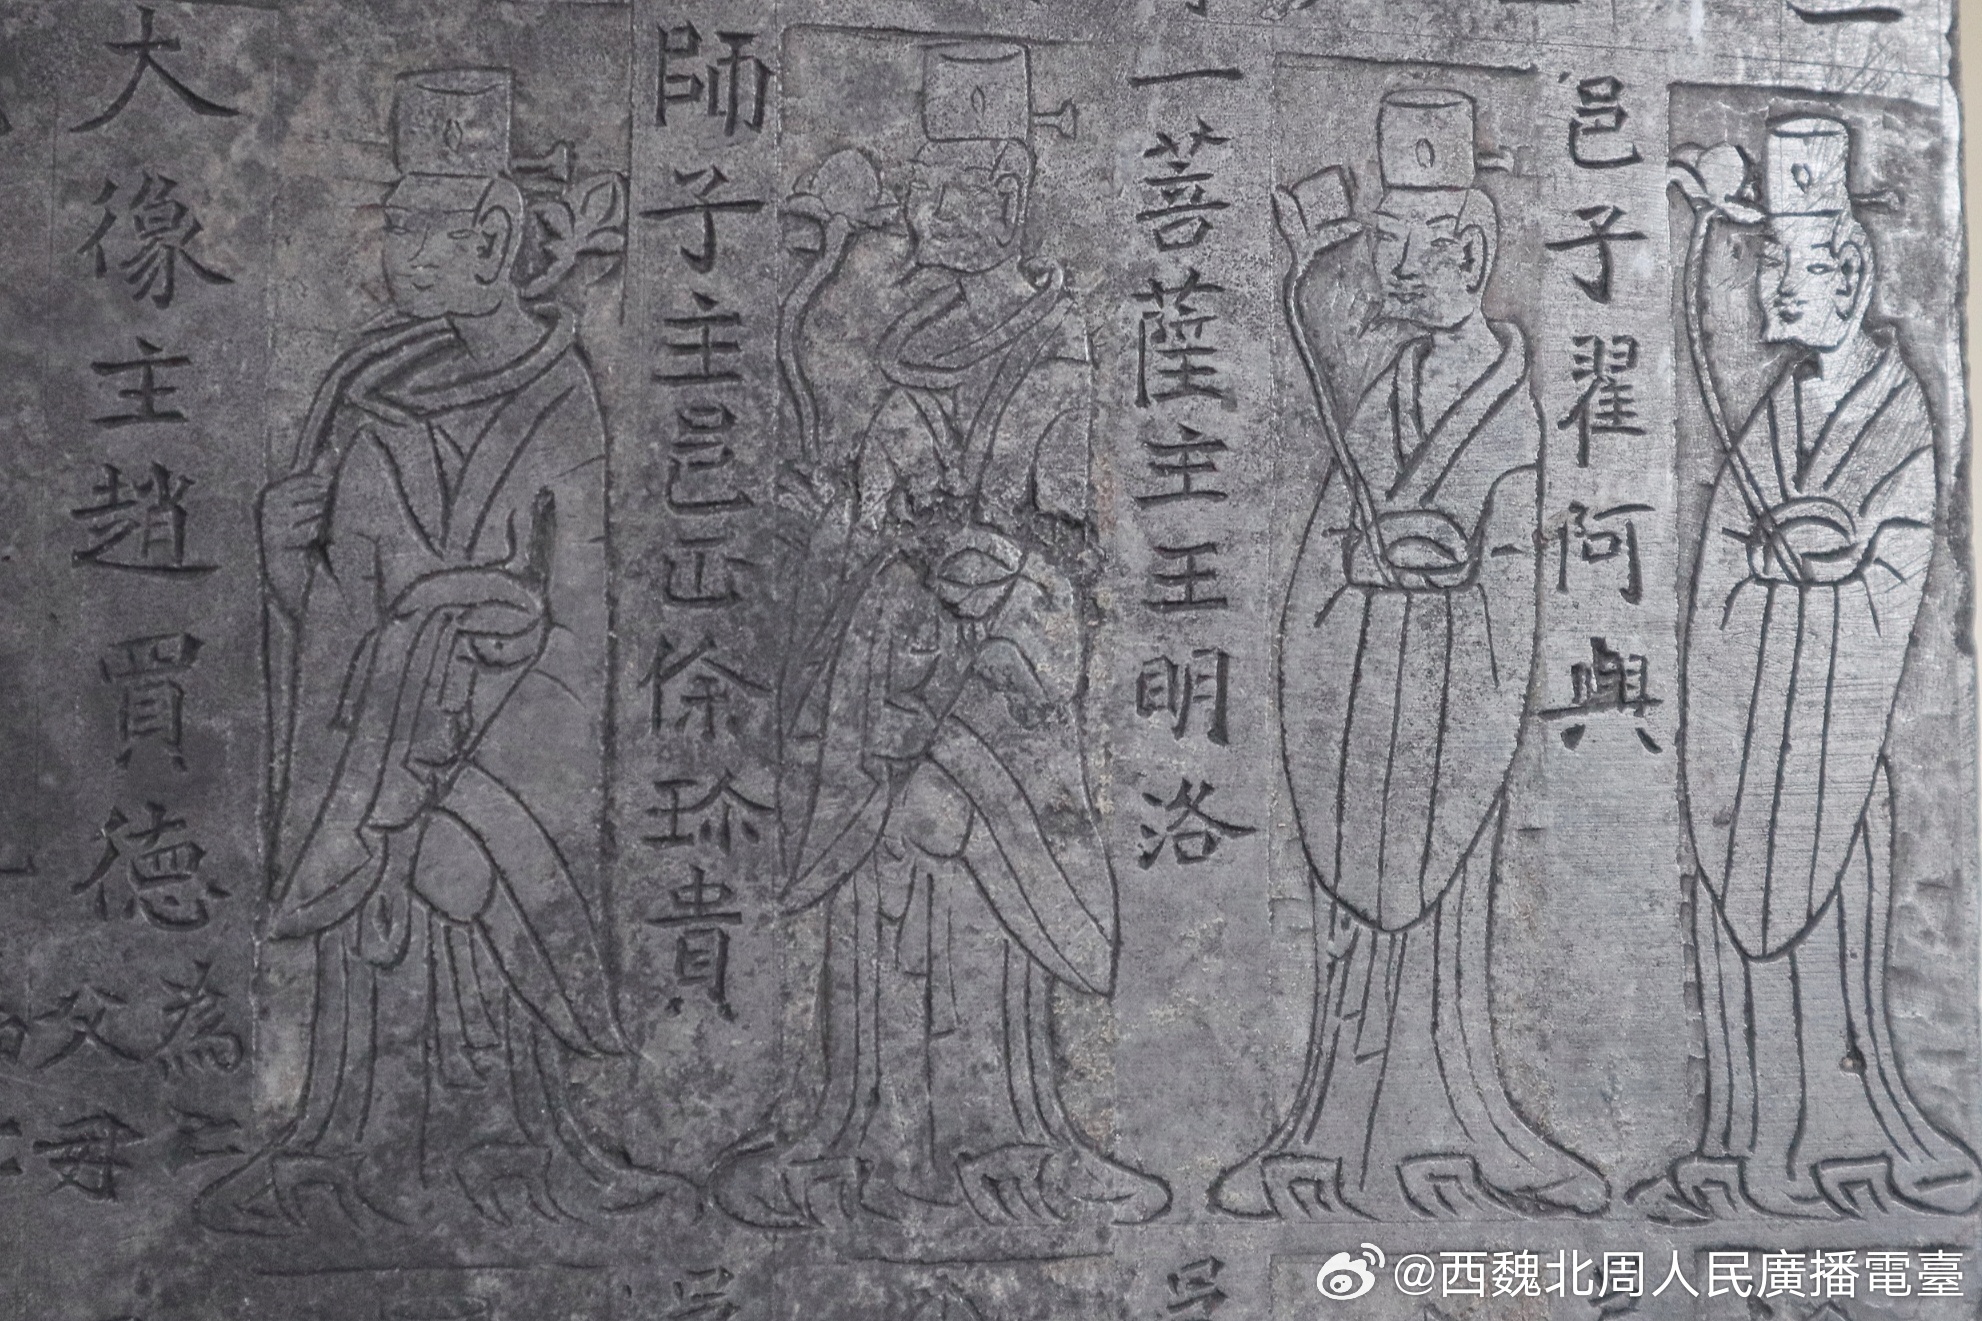 邑子翟阿興
一菩薩主王明洛
師子主邑正徐珎貴
大像主趙買德
為亡
父母
@西魏北周人民廣播電臺